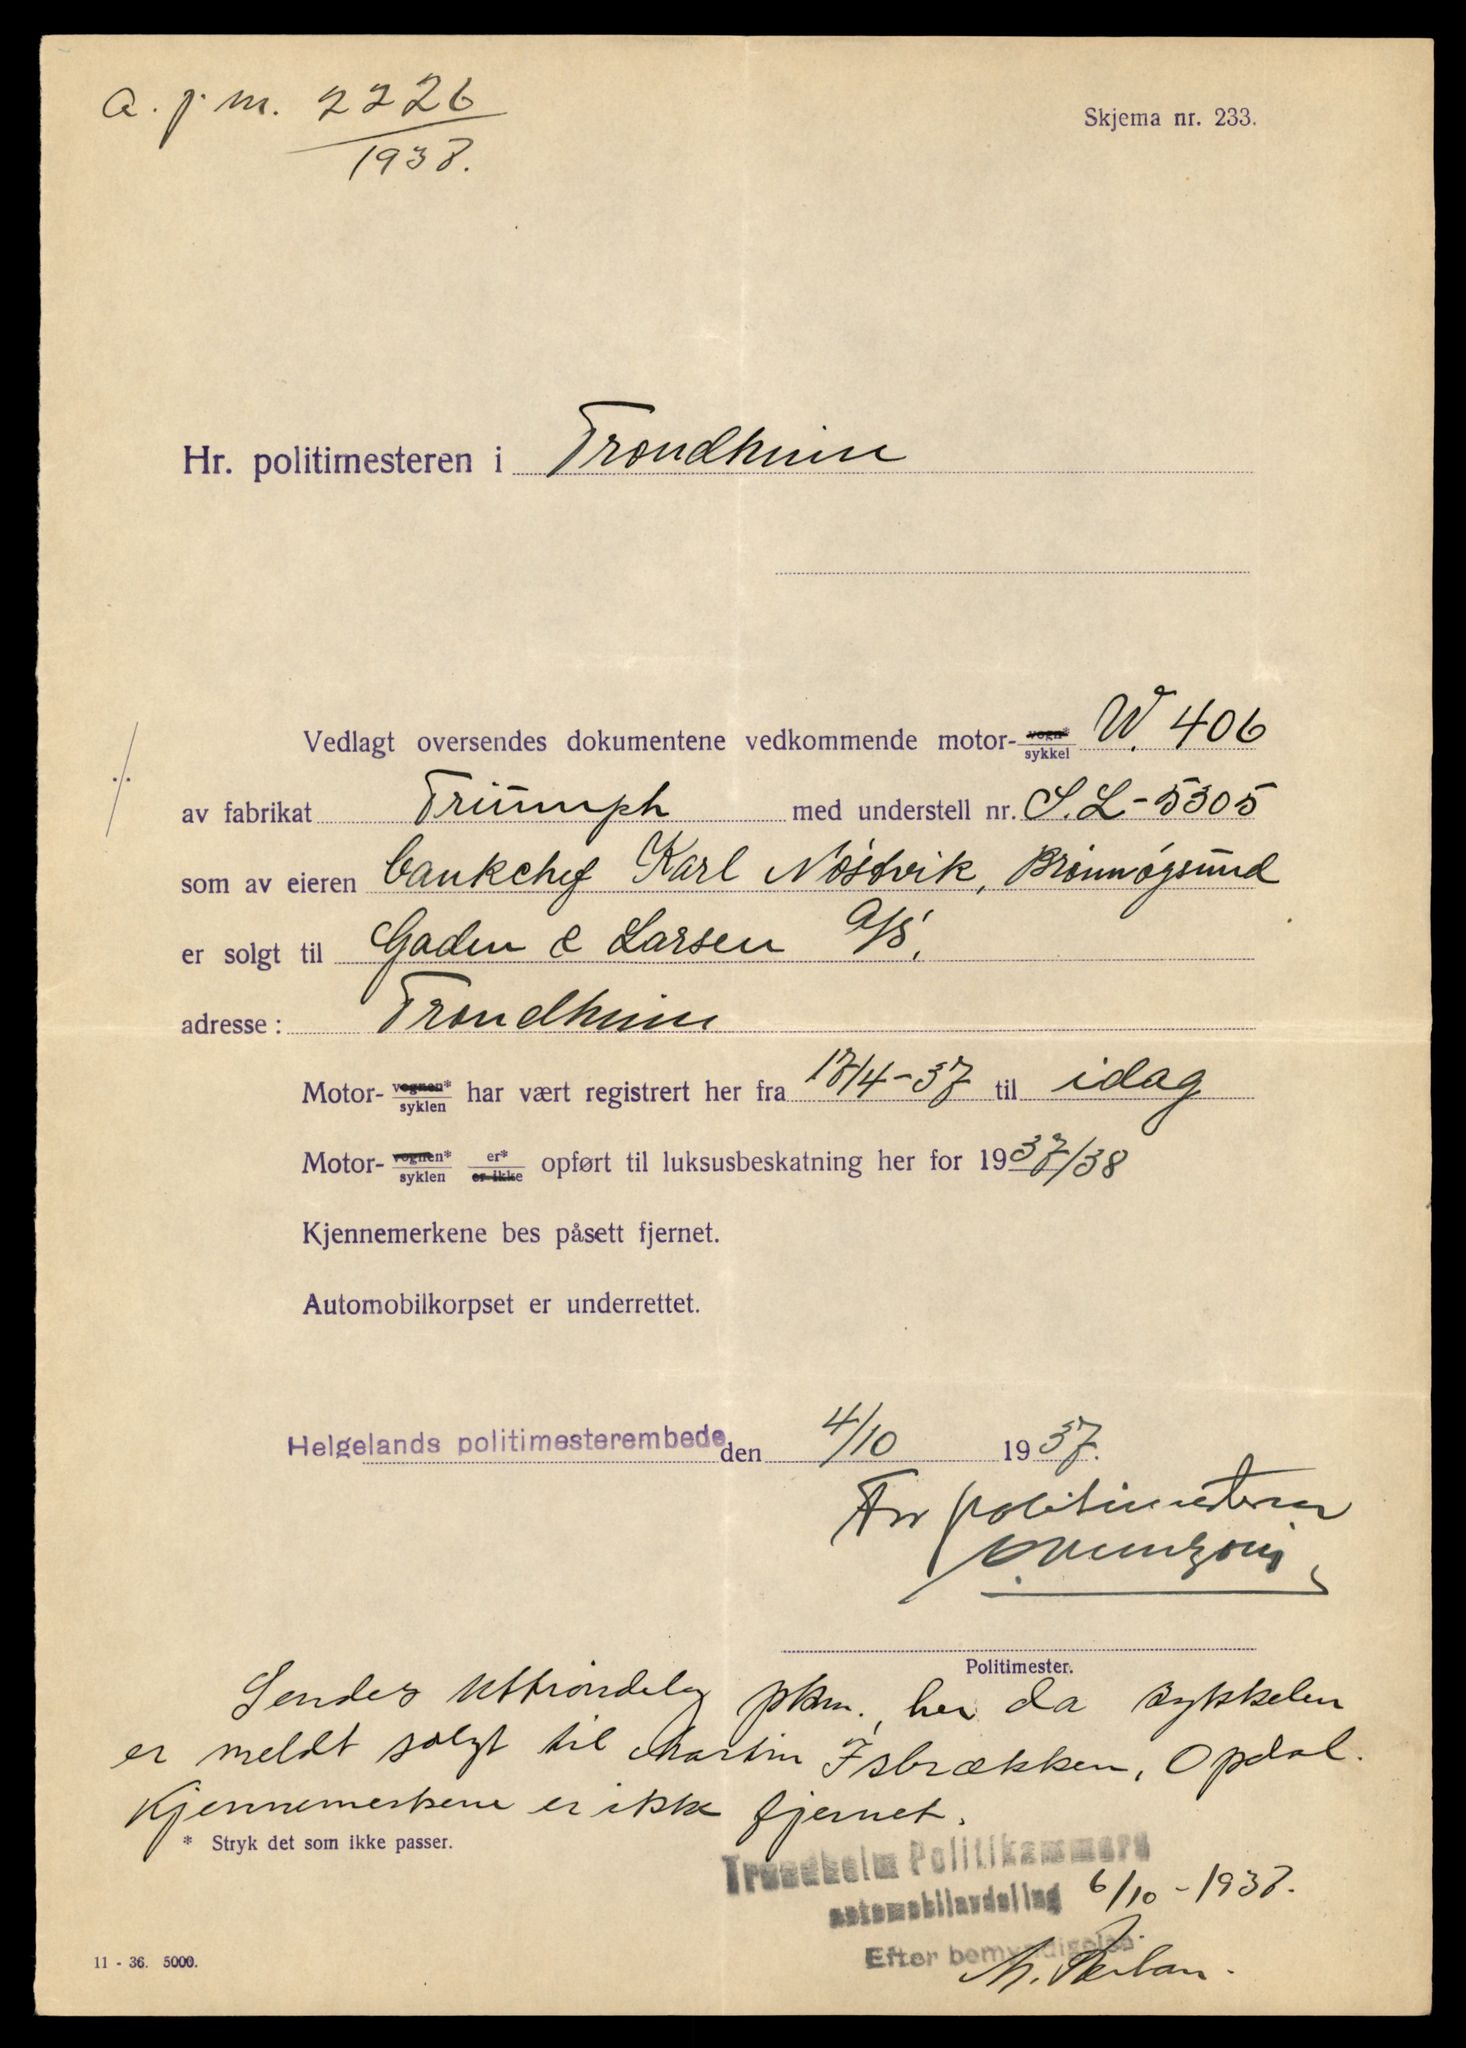 a. j. nr. 2226
1937.
Skjema nr. 233.
Hr. politimesteren i Trondheim
Vedlagt oversendes dokumentene vedkommende motor-vogn*/sykkel W. 406
av fabrikat Triumph med understell nr. S.L-5305
som av eieren bankchef Karl Nøstvik, Brønnøysund
er solgt til Gaden & Larsen A/S.
adresse: Trondheim
Motor-vognen*/syklen har vært registrert her fra 17/4-37 til idag
Motor-vognen*/syklen er*/er ikke opført til luksusbeskatning her for 1937/38
Kjennemerkene bes påsett fjernet.
Automobilkorpset er underrettet.
Helgelands politimesterembede den 4/10 1937.
For politimesteren
Politimester.
Sendes Uttrøndelag pkm. her da sykkelen
er meldt solgt til Martin Isbrekken, Opdal.
Kjennemerkene er ikke fjernet.
* Stryk det som ikke passer.
Trondheim Politikammers
automobilavdeling 6/10-1937.
Efter bemyndigelse
11 - 36. 5000.